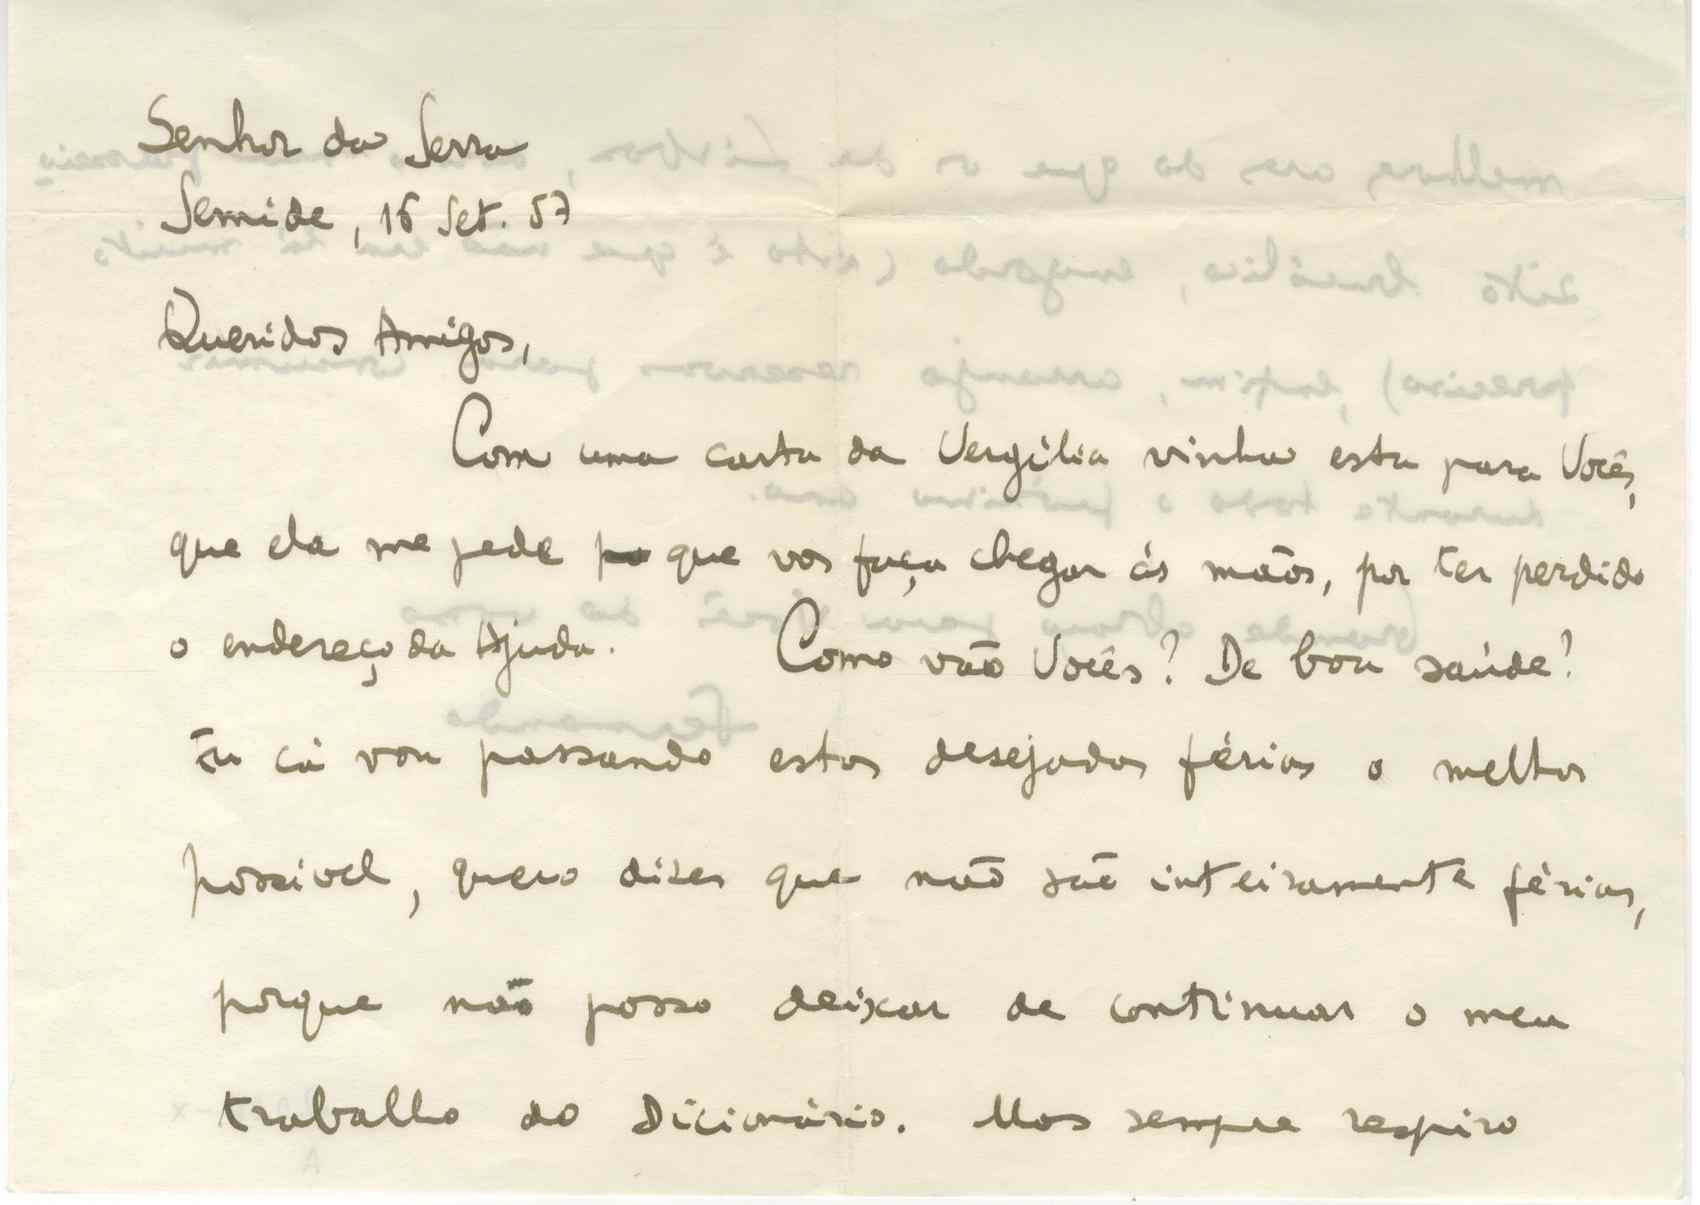 Senhor da Serra
Semide, 16 Set. 57
Queridos Amigos,
Com uma carta da Vergília vinha esta para Vocês,
que ela me pede que vos faça chegar às mãos, por ter perdido
o endereço da Ajuda. Como vão Vocês? De boa saúde?
Eu cá vou passando estas desejadas férias o melhor
possivel, quero dizer que não são inteiramente férias,
porque não posso deixar de continuar o meu
trabalho do Dicionário. Mas sempre respiro